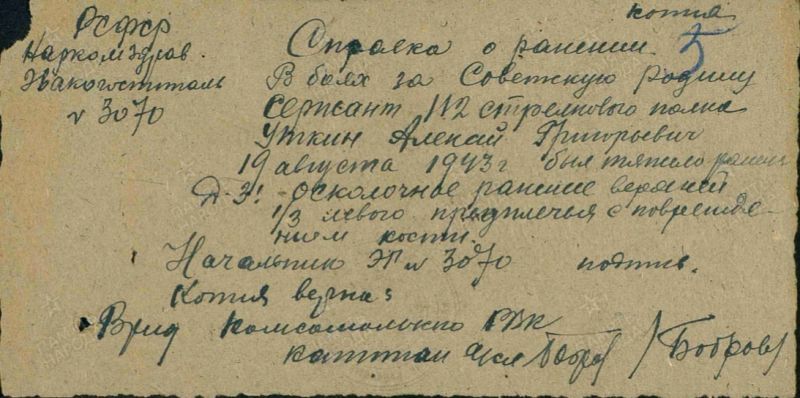 копия
РСФСР
Наркомздрав.
Эвакогоспиталь
№ 3070
Справка о ранении. 5
В боях за Советскую Родину
сержант 112 стрелкового полка
Уткин Алексей Григорьевич
19 августа 1943 г был тяжело ранен
Д-з: осколочное ранение верхней
1/3 левого предплечья с поврежде-
нием кости.
Начальник ЭГ № 3070 подпись.
Копия верна:
Врид Комсомольского РВК
капитан Бобров /Бобров/